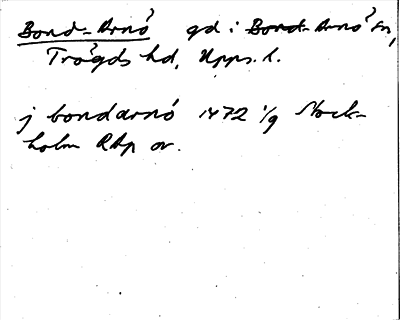 Bond-Arnö gd i Bond-Arnö sn,
Trögds hd, Upps. l.
j bondarnö 1472 1/9 Stock-
holm RAp or.